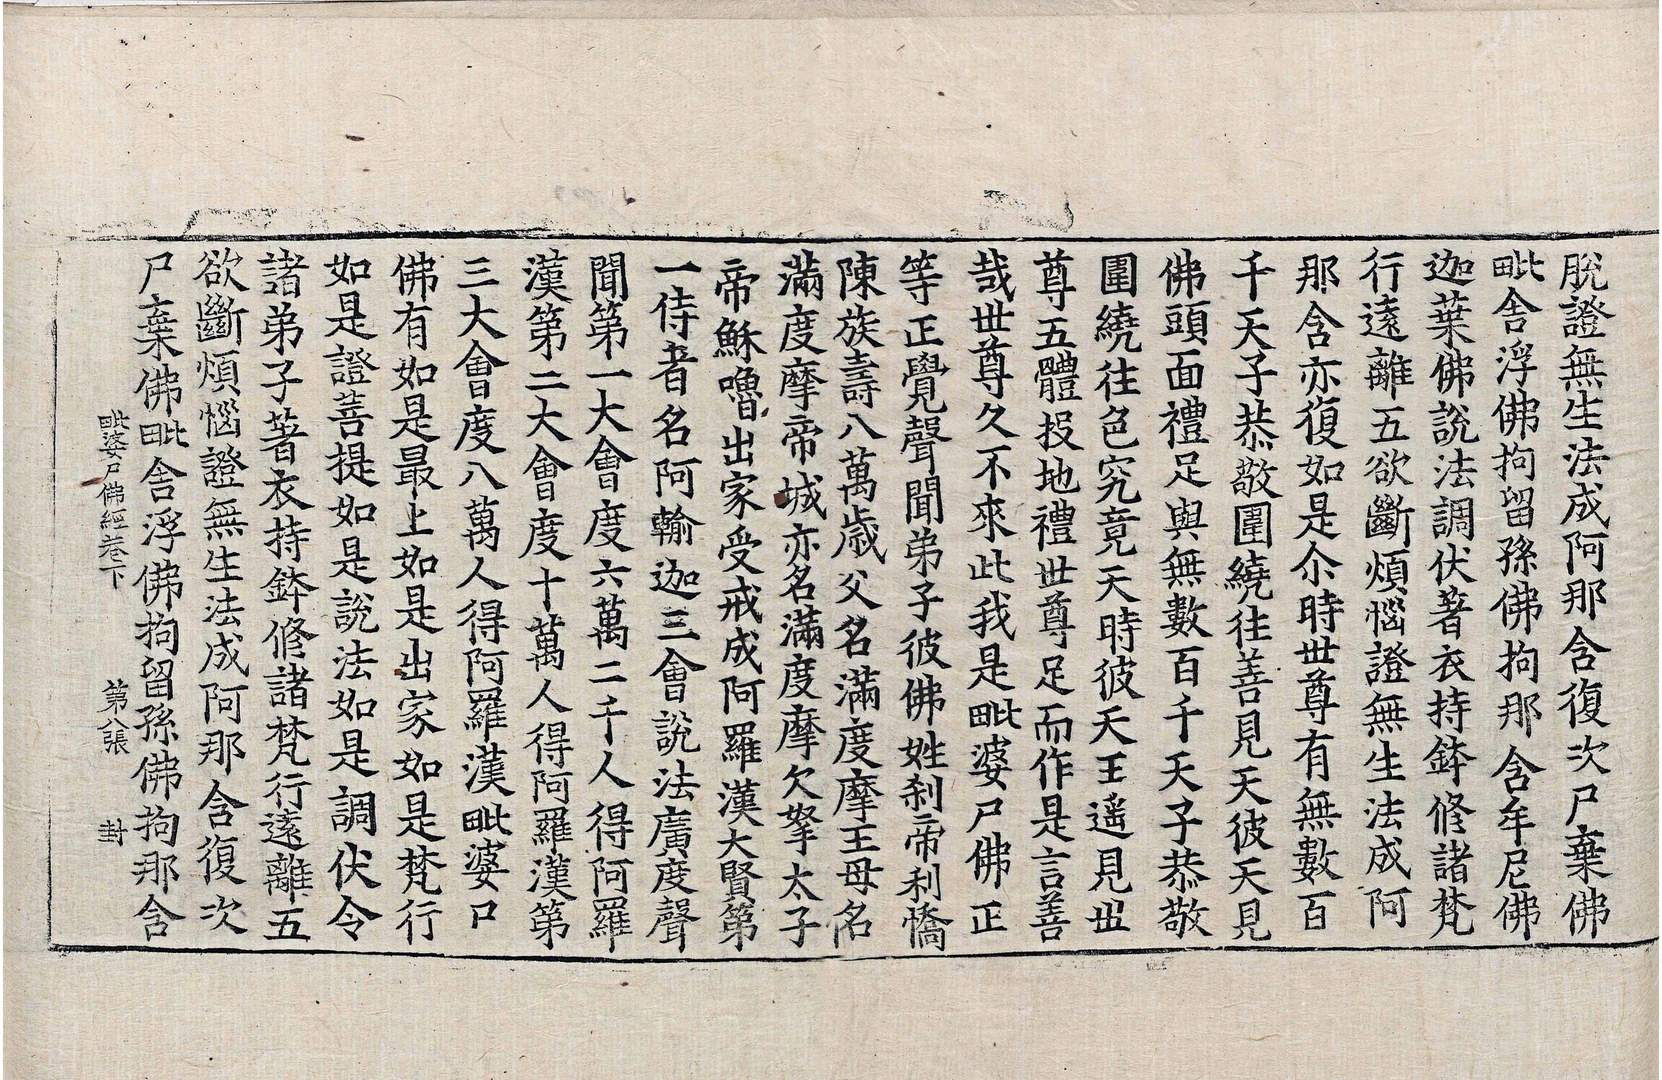 脫證無生法成阿那含復次尸棄佛
毗舍浮佛拘留孫佛拘那含牟尼佛
迦葉佛說法調伏著衣持鉢修諸梵
行遠離五欲斷煩惱證無生法成阿
那含亦復如是尒時世尊有無數百
千天子恭敬圍繞往善見天彼天見
佛頭面禮足與無數百千天子恭敬
圍繞往色究竟天時彼天王遥見世
尊五體投地禮世尊足而作是言善
哉世尊久不來此我是毗婆尸佛正
等正覺聲聞弟子彼佛姓刹帝利憍
陳族壽八萬歲父名滿度摩王母名
滿度摩帝城亦名滿度摩欠拏太子
帝穌嚕出家受戒成阿羅漢大賢第
一侍者名阿輸迦三會說法廣度聲
聞第一大會度六萬二千人得阿羅
漢第二大會度十萬人得阿羅漢第
三大會度八萬人得阿羅漢毗婆尸
佛有如是最上如是出家如是梵行
如是證菩提如是說法如是調伏令
諸弟子著衣持鉢修諸梵行遠離五
欲斷煩惱證無生法成阿那含復次
尸棄佛毗舍浮佛拘留孫佛拘那含
毗婆尸佛經卷下 第八張 封